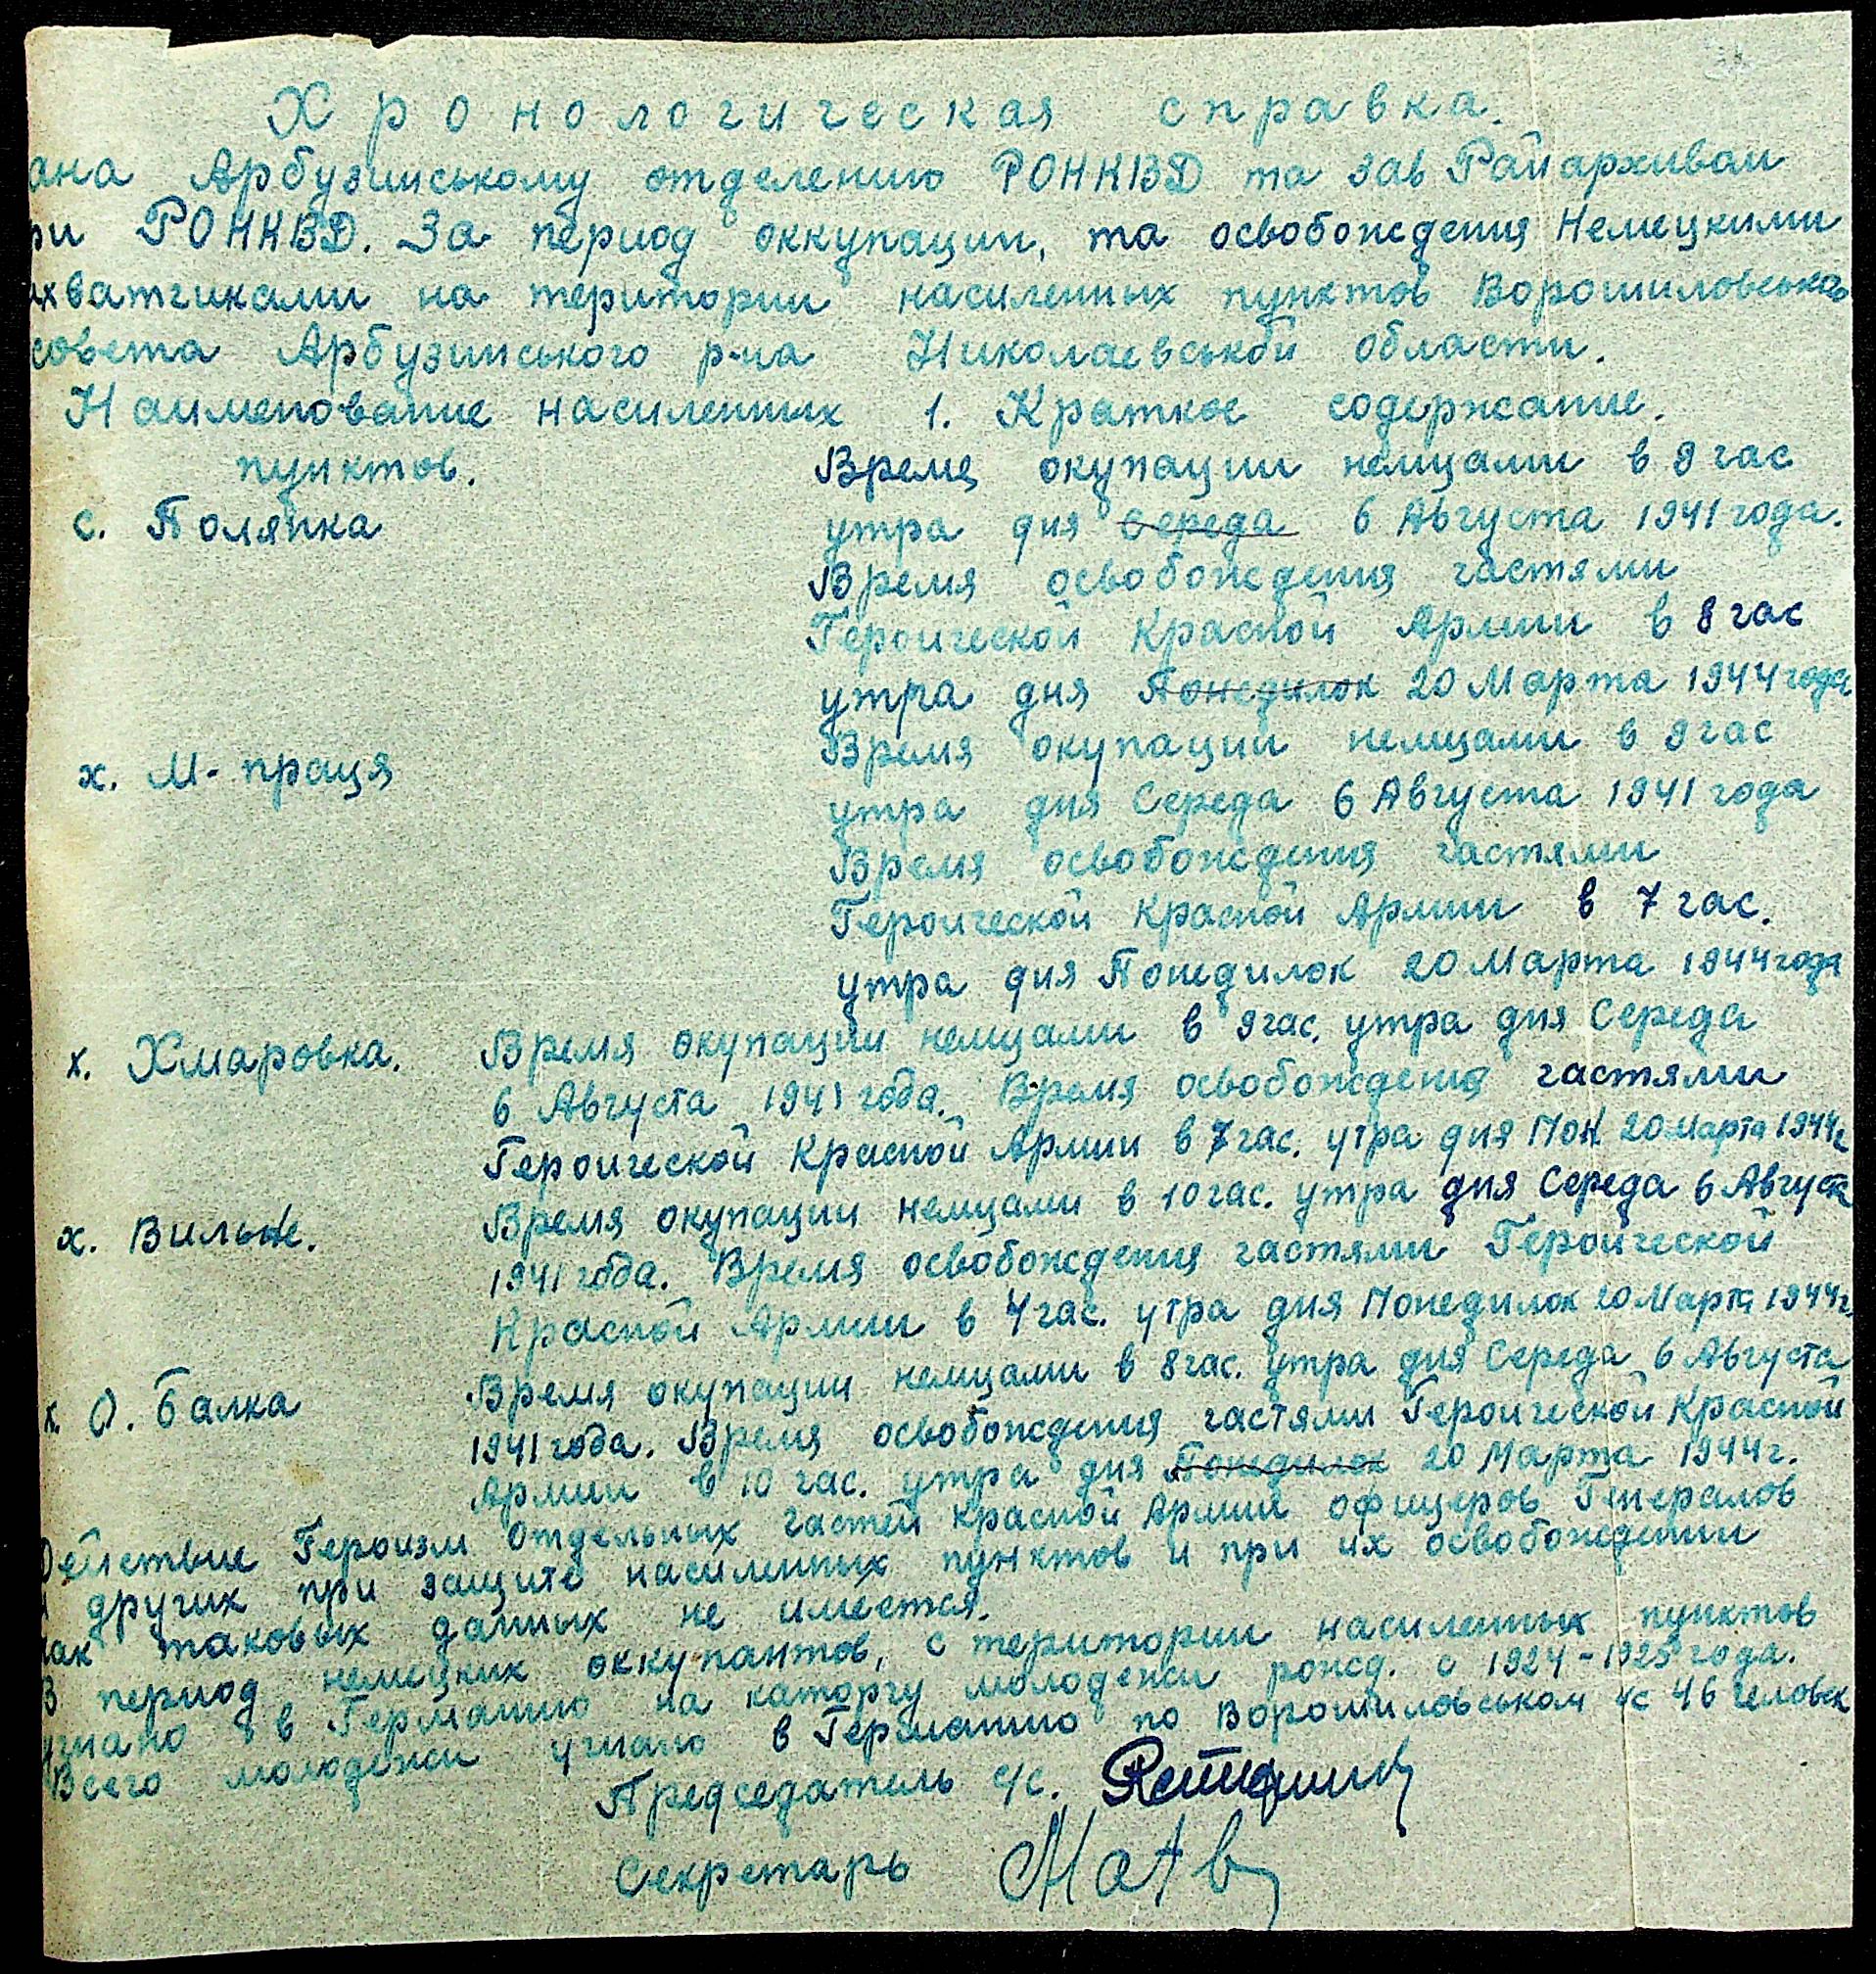 Хронологическая справка.
ана Арбузинському отделению РОНКВД та зав Райархивом
ри РОНКВД. За период оккупации, та освобождения Немецкими
ахватчиками на територии насиленных пунктов Ворошиловського
совета Арбузинського р-на Николаевськой области.
Наименование насиленных 1. Краткое содержание.
пунктов.
Время окупации немцами в 9 час
с. Полянка
утра дня Середа 6 Августа 1941 года.
Время освобождения частями
Героической Красной Армии в 8 час
утра дня Понедилок 20 Марта 1944 года
Время окупации немцами в 9 час
х. М-праця
утра дня Середа 6 Августа 1941 года
Время освобождения частями
Героической Красной Армии в 7 час.
утра дня Понедилок 20 Марта 1944 года
х. Хмаровка. Время окупации немцами в 9 час. утра дня Середа
6 Августа 1941 года. Время освобождения частями
Героической Красной Армии в 7 час. утра дня Пон. 20 марта 1944г
х. Вильне. Время окупации немцами в 10 час. утра дня Середа 6 Августа
1941 года. Время освобождения частями Героической
Красной Армии в 4 час. утра дня Понедилок 20 Марта 1944г
х. О. Балка Время окупации немцами в 8 час. утра дня Середа 6 Августа
1941 года. Время освобождения частями Героической Красной
Армии в 10 час. утра дня Понедилок 20 Марта 1944г.
Действие Героизм отдельных частей красной Армии офицеров Генералов
и других при защите насиленных пунктов и при их освобождении
как таковых данных не имеется.
В период немецких оккупантов, с територии насиленных пунктов
угнано в Германию на каторгу молодежи рожд. с 1924-1925 года.
Всего молодежи угнано в Германию по Ворошиловськом с/с 46 человек
Председатель с/с.
Секретарь Матв